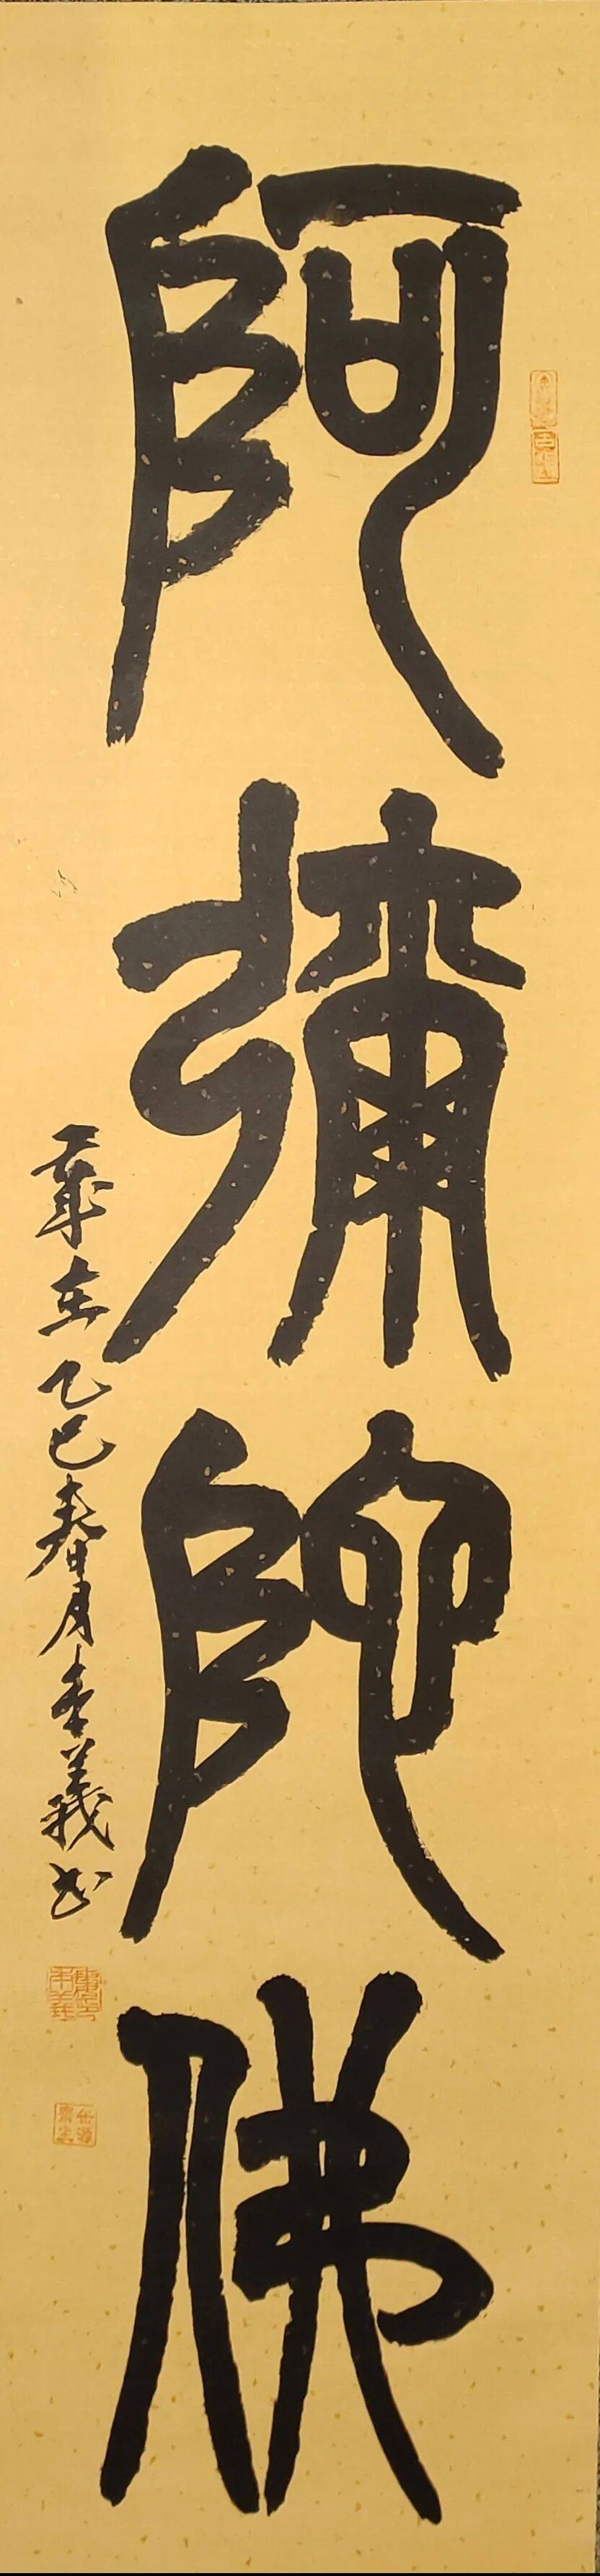 阿彌陀佛
歲在乙巳春月李義书